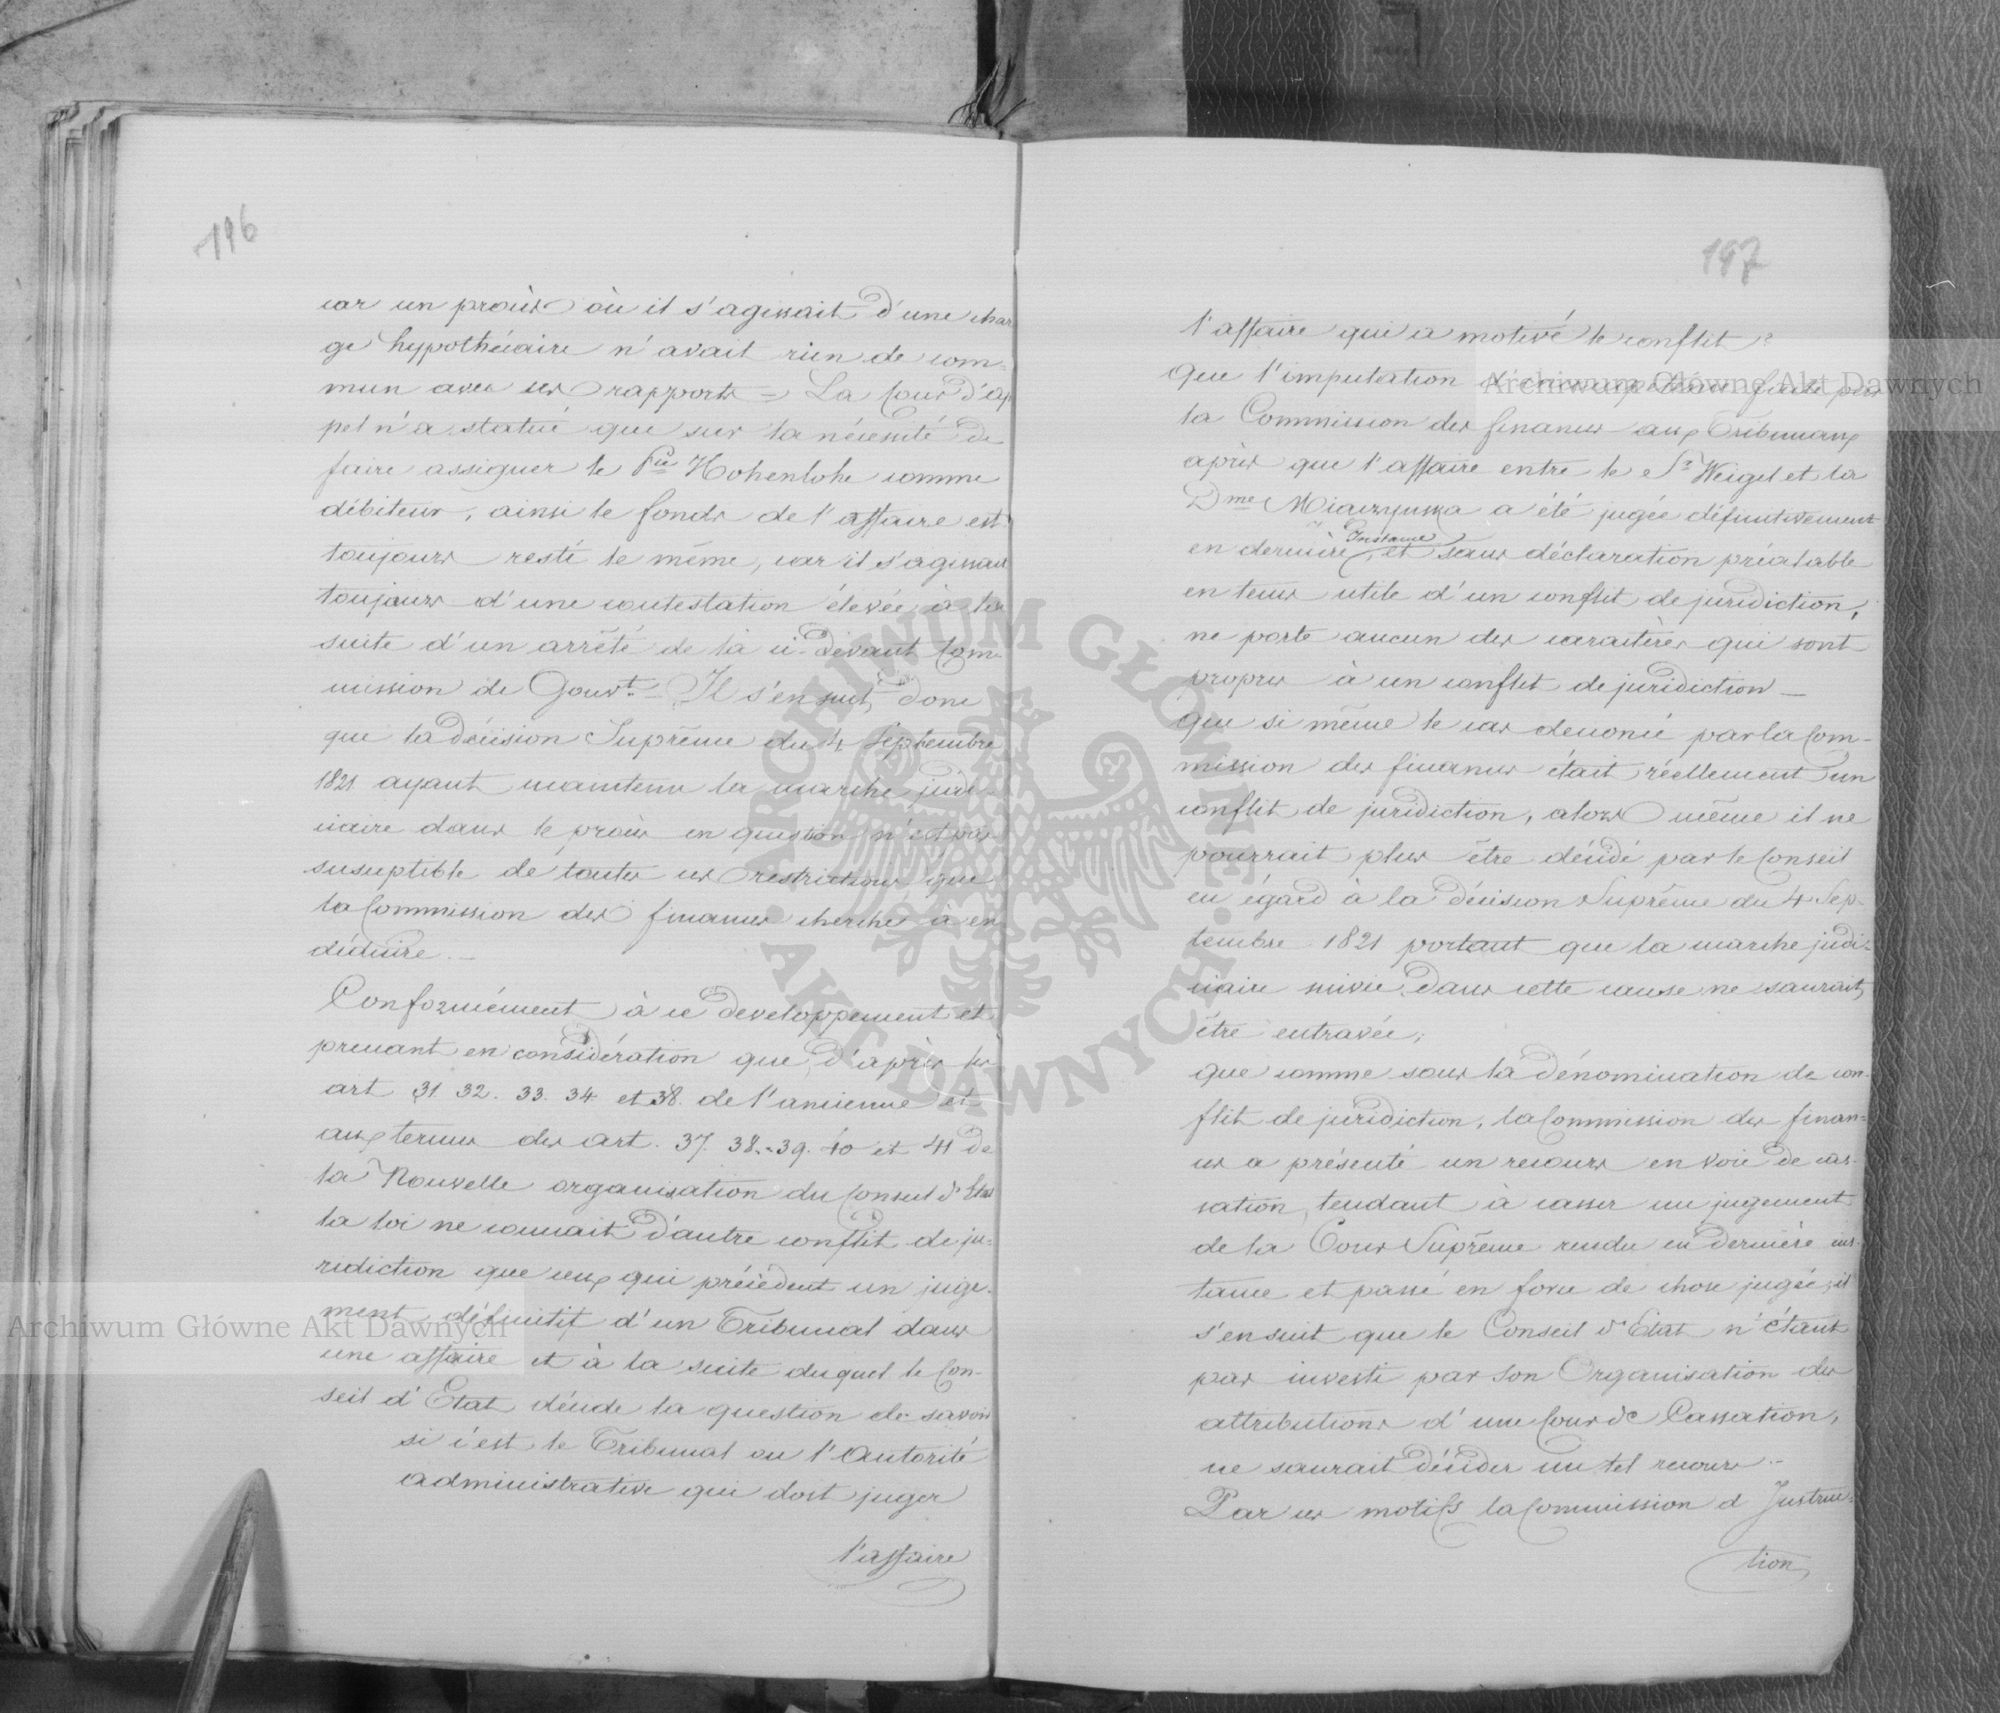 196
car un procès où il s'agissait d'une char
ge hypothécaire n'avait rien de com=
mun avec ces rapports = La Cour d'ap
pel n'a statué que sur la nécessité de
faire assigner le Pce Hohenlohe comme
débiteur, ainsi le fonds de l'affaire est
toujours resté le même, car il s'agissait
toujours d'une contestation élevée à la
suite d'un arrêté de la ci-devant Com-
mission de Gouvt. Il s'en suit donc
que la décision Suprême du 4 Septembre
1821 ayant maintenu la marche judi-
ciaire dans le procès en question n'est pas
susceptible de toutes ces restrictions que
la Commission des finances cherche à en
déduire. —
Conformément à ce developpement et
prenant en considération que d'après les
art 31. 32. 33. 34 et 38. de l'ancienne et
aux termes des art. 37. 38.-39. 40 et 41 de
la Nouvelle organisation du Conseil d'Etat
la loi ne connait d'autre conflit de ju=
ridiction que ceux qui précèdent un juge-
ment définitif d'un Tribunal dans
une affaire et à la suite duquel le Con-
seil d'Etat décide la question de savoir
si c'est le Tribunal ou l'Autorité
administrative qui doit juger
l'affaire
197
l'affaire qui a motivé le conflit;
Que l'imputation faite par
la Commission des finances aux Tribunaux
après que l'affaire entre le Sr Weigel et la
Dme Miaczynska a été jugée définitivement
en dernière Instance, et sans déclaration préalable
en tems utile d'un conflit de juridiction,
ne porte aucun des caractères qui sont
propres à un conflit de juridiction —
que si même le cas denoncé par la Com-
mission des finances était réellement un
conflit de juridiction, alors même il ne
pourrait plus être décidé par le Conseil
eu égard à la décision Suprême du 4 Sep-
tembre 1821 portant que la marche judi-
ciaire suivie dans cette cause ne saurait
être entravée;
que comme sous la dénomination de con-
flit de juridiction, la Commission des finan=
ces a présenté un recours en voie de cas-
sation, tendant à casser un jugement
de la Cour Suprême rendu en dernière ins-
tance et passé en force de chose jugée, il
s'ensuit que le Conseil d'Etat n'étant
pas investi par son Organisation des
attributions d'une Cour de Cassation,
ne saurait décider un tel recours. -
Par ces motifs la Commission d'Instruc=
tion
ARCHIWUM GŁÓWNE AKT DAWNYCH
Archiwum Główne Akt Dawnych
Archiwum Główne Akt Dawnych